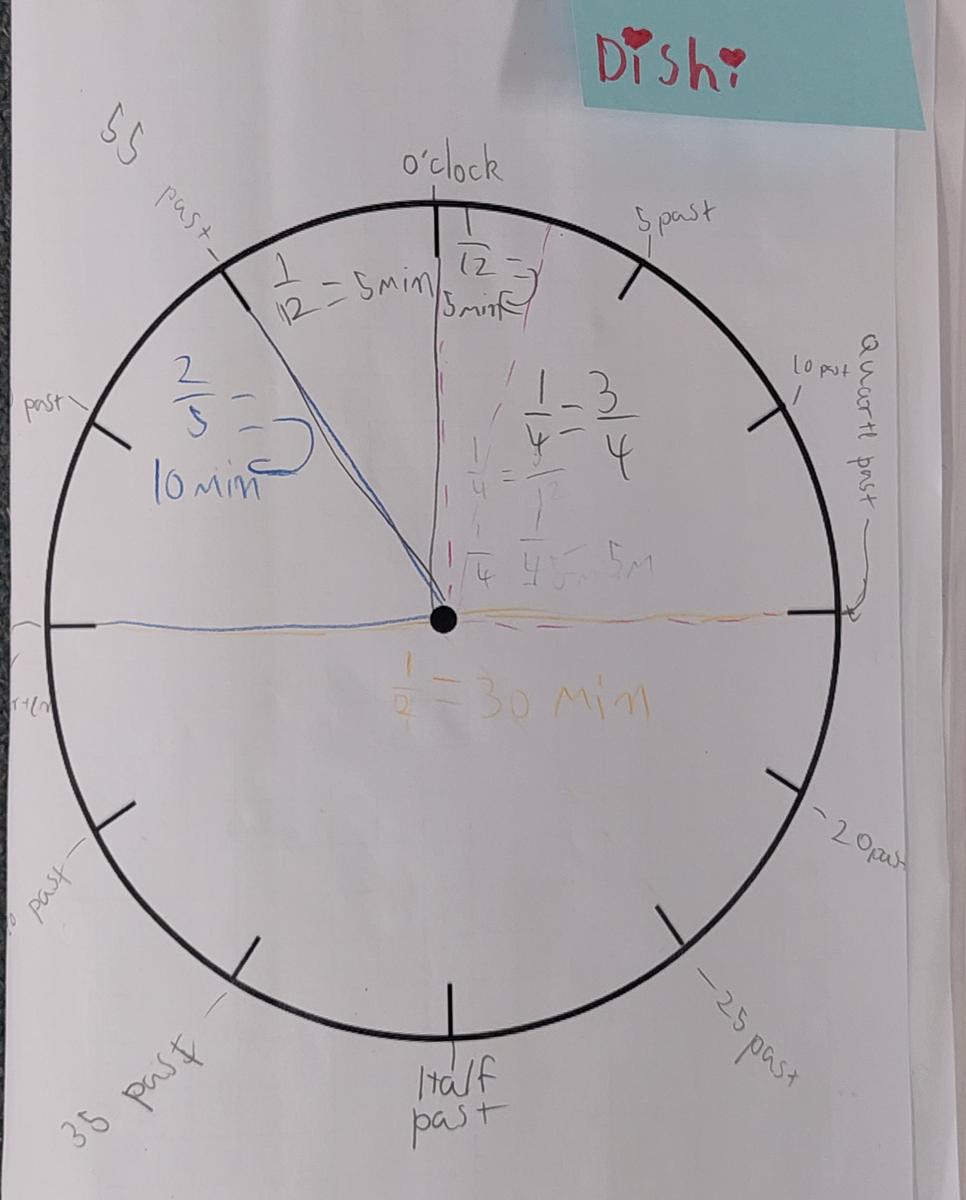 Dishi
55
past
o'clock
5 past
1/12 = 5 min
1/12 =
5 min
10 past
Quartl past
past
2/5 =
10 min
1/4 = 3/4
1/4 =
1/4
1/4
5m
1/2 = 30 min
20 past
past
25 past
35 past
Half
past